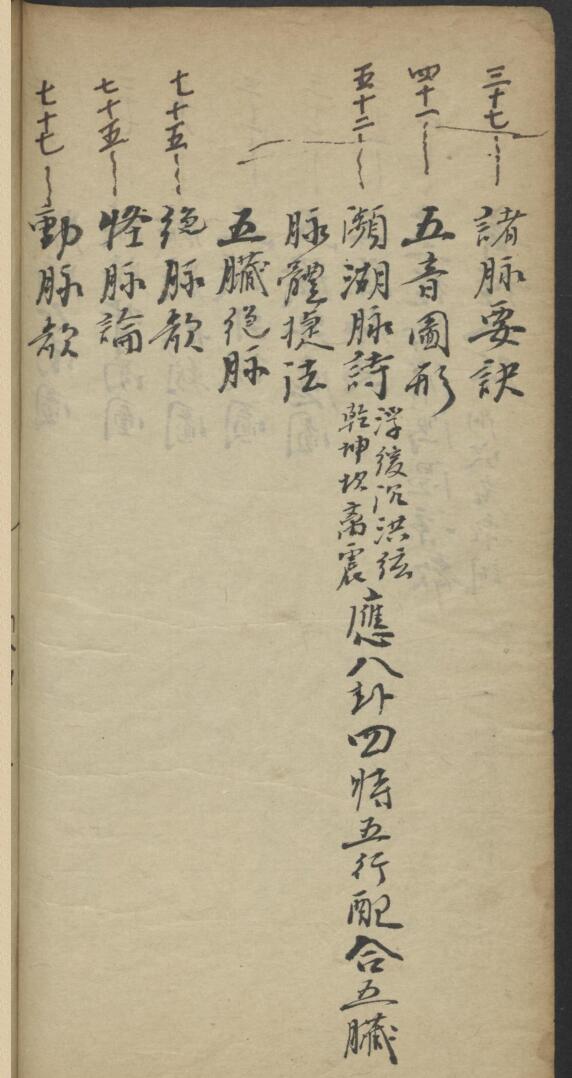 三十七 諸脉要訣
四十一 五音圖形
五十二 瀕湖脉詩 浮緩沉洪弦 乾坤坎离震 應八卦四時五行配合五臟
脉體捷法
五臟絕脉
七十五 絕脉歌
七十五 怪脉論
七十七 動脉歌